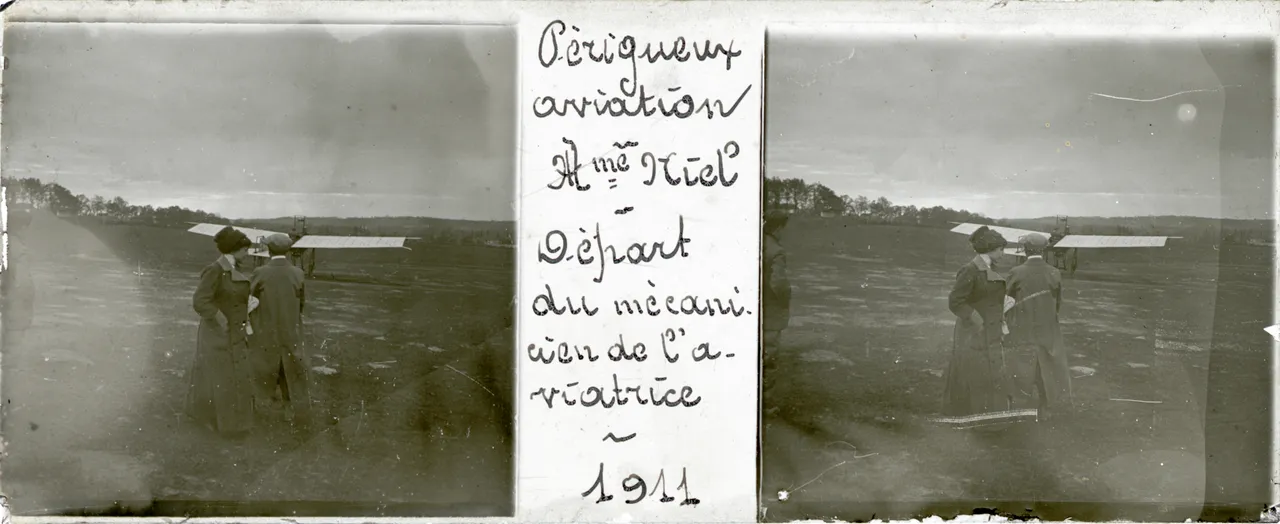 Périgueux
aviation
Mme Niel
-
Départ
du mécani-
cien de l'a-
viatrice
~
1911